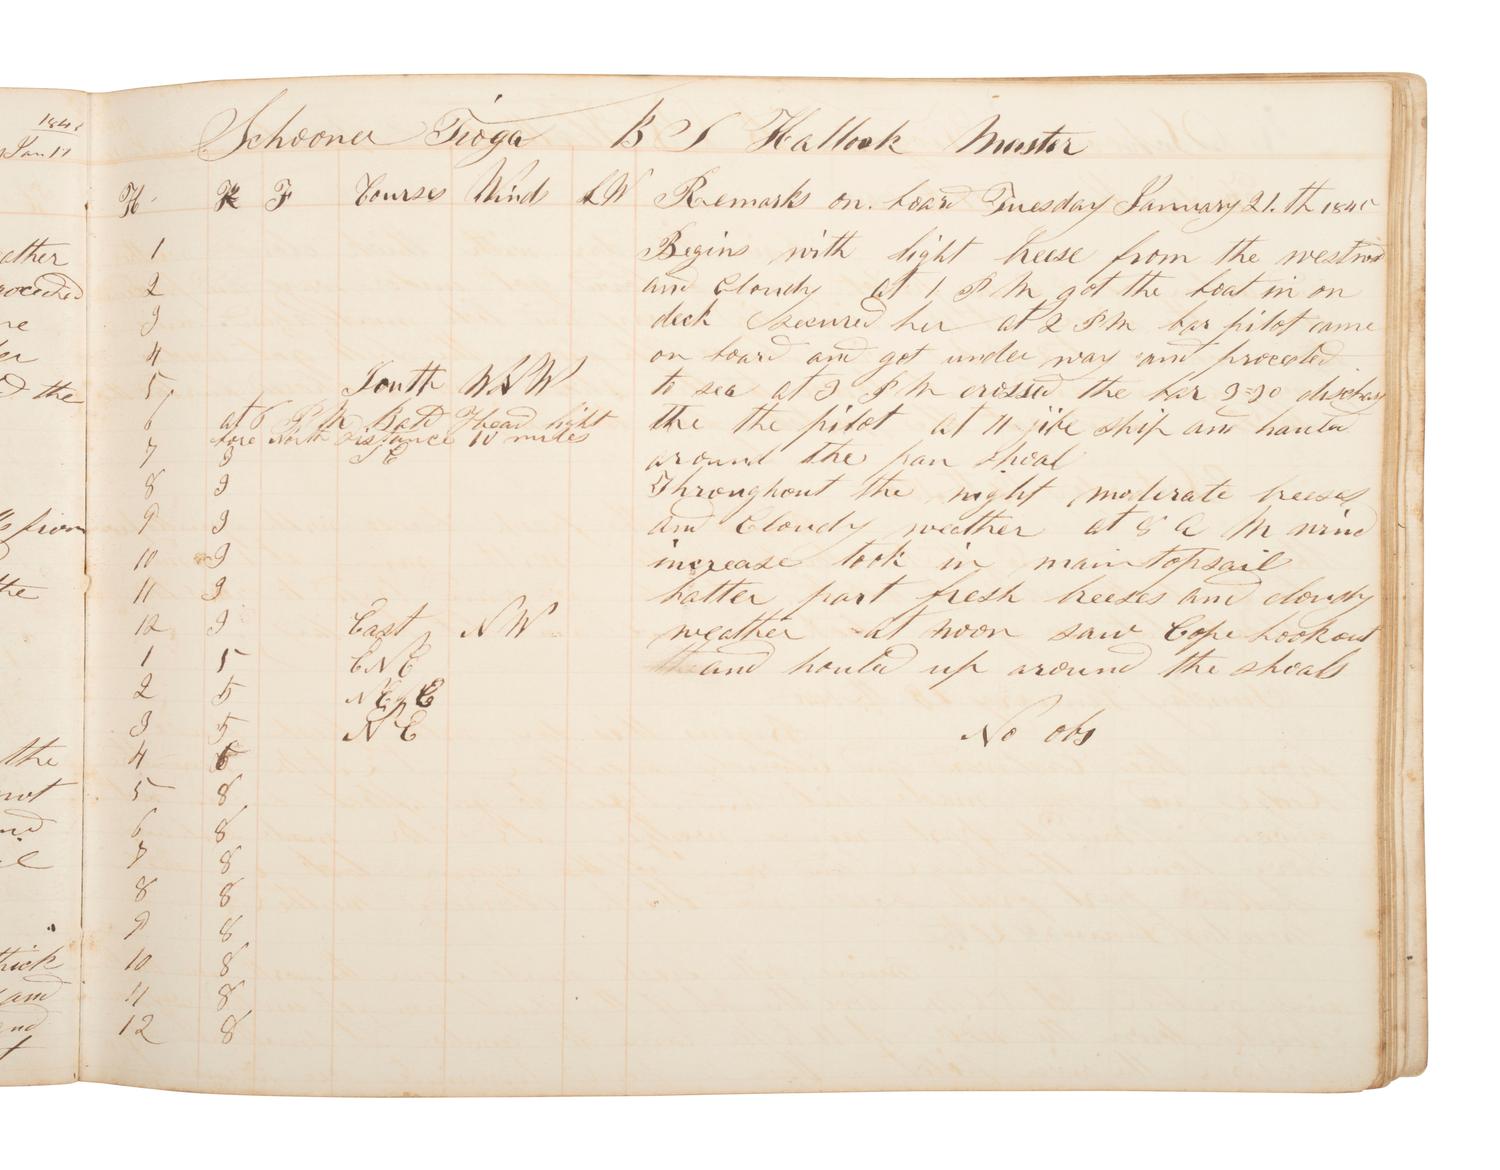 1845
Jan 11
ather
roceeded
ne
the
from
the
the
not
and
thick
and
Schooner Tioga B S Hallock Master
H K F Courses Wind LW Remarks on board Tuesday January 21.th 1845
1 Begins with light breese from the westward
2 and Cloudy at 1 P M got the boat in on
3 deck Secured her at 2 P M bar pilot came
4 on board and got under way and proceeded
5 South WSW to sea at 3 P M crossed the bar 3=30 discharg
6 at 6 P M Bald Head light the the pilot at 11 jibe ship and hauled
bore North distance 10 miles
7 3 E around the pan shoal
8 9 Throughout the night moderate breeses
9 9 and Cloudy weather at 8 A M wind
10 9 increase took in main topsail
11 9 Latter part fresh breeses and cloudy
12 9 East NW weather at noon saw Cope Lookout
1 5 ENE and hauled up around the shoals
2 5 NE by E
3 5 NE No obs
4 6
5 8
6 8
7 8
8 8
9 8
10 8
11 8
12 8